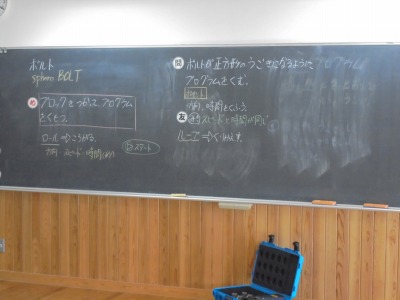 ボルト
sphero BOLT
め ブロックをつかって、プログラム
をくもう。
ロール ⇒ころがる。
方向・スピード・時間
▷スタート
問 ボルトが正方形のうごきになるように
プログラムをくむ。
方向、時間をくふう。
友 スピードと時間は同じ
ループ⇒くりかえす。